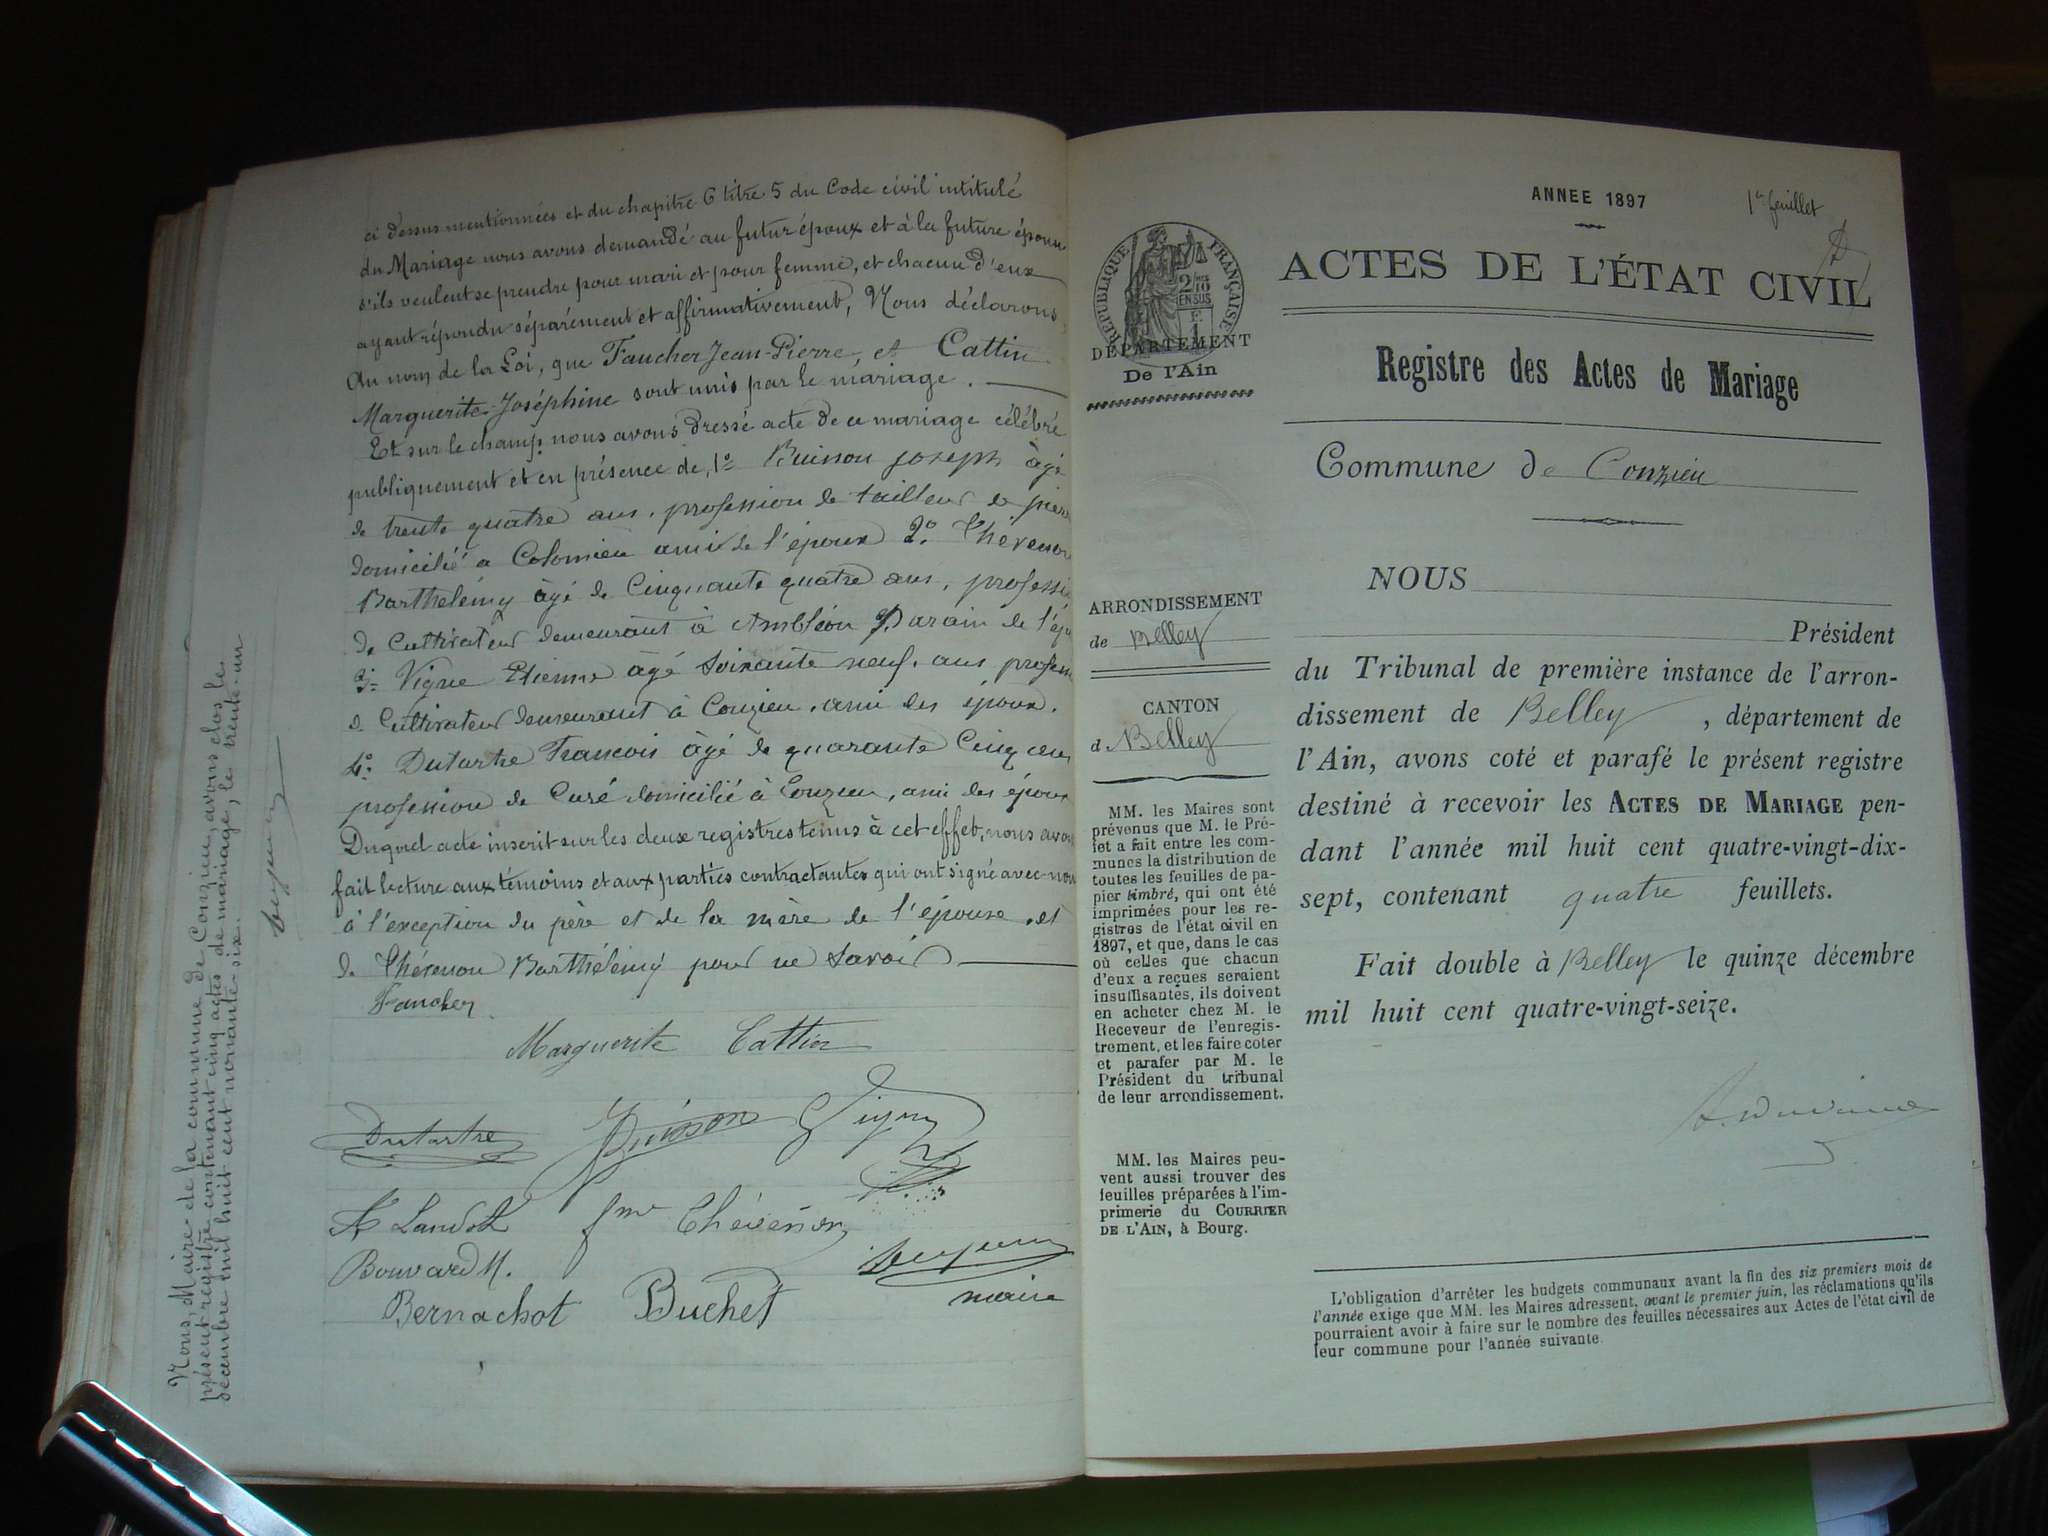 ci dessus mentionnées et du chapitre 6 titre 5 du Code civil intitulé
du Mariage nous avons demandé au futur époux et à la future épouse
s'ils veulent se prendre pour mari et pour femme, et chacun d'eux
ayant répondu séparément et affirmativement, Nous déclarons
Au nom de la Loi, que Faucher Jean-Pierre, et Cattin
Marguerite-Joséphine sont unis par le mariage.
Et sur le champ, nous avons dressé acte de ce mariage célébré
publiquement et en présence de, 1º Buisson Joseph âgé
de trente quatre ans, profession de tailleur de pierre
domicilié à Colomieu ami de l'époux 2º Thévenon
Barthélémy âgé de Cinquante quatre ans, professi
de Cultivateur demeurant à Ambléon Parain de l'épo
3º Vigne Etienne âgé soixante neuf ans profess
de Cultivateur demeurant à Conzieu, ami des époux.
4º Dutartre Francois âgé de quarante Cinq ans
profession de Curé domicilié à Conzieu, ami des époux
Duquel acte inscrit sur les deux registres tenus à cet effet, nous avons
fait lecture aux témoins et aux parties contractantes qui ont signé avec nou
à l'exception du père et de la mère de l'épouse, et
de Thévenon Barthélémy pour ne savoir
Faucher
Marguerite Cattin
Dutartre Buisson Vigne
Landot Thévenon
Bouvard M.
maire
Bernachot Buchet
Nous, Maire de la commune de Conzieu, avons clos le
présent registre contenant cinq actes de mariage, le trente-un
décembre mil huit cent nonante-six.
ANNEE 1897
1er feuillet
ACTES DE L'ÉTAT CIVIL
Registre des Actes de Mariage
Commune de Conzieu
RÉPUBLIQUE FRANÇAISE
2/10
EN SUS
F.
1
DÉPARTEMENT
De l'Ain
ARRONDISSEMENT
de Belley
CANTON
d Belley
MM. les Maires sont
prévenus que M. le Pré-
fet a fait entre les com-
munes la distribution de
toutes les feuilles de pa-
pier timbré, qui ont été
imprimées pour les re-
gistres de l'état civil en
1897, et que, dans le cas
où celles que chacun
d'eux a reçues seraient
insuffisantes, ils doivent
en acheter chez M. le
Receveur de l'enregis-
trement, et les faire coter
et parafer par M. le
Président du tribunal
de leur arrondissement.
MM. les Maires peu-
vent aussi trouver des
feuilles préparées à l'im-
primerie du COURRIER
DE L'AIN, à Bourg.
NOUS
Président
du Tribunal de première instance de l'arron-
dissement de Belley, département de
l'Ain, avons coté et parafé le présent registre
destiné à recevoir les ACTES DE MARIAGE pen-
dant l'année mil huit cent quatre-vingt-dix-
sept, contenant quatre feuillets.
Fait double à Belley le quinze décembre
mil huit cent quatre-vingt-seize.
L'obligation d'arrêter les budgets communaux avant la fin des six premiers mois de
l'année exige que MM. les Maires adressent, avant le premier juin, les réclamations qu'ils
pourraient avoir à faire sur le nombre des feuilles nécessaires aux Actes de l'état civil de
leur commune pour l'année suivante.